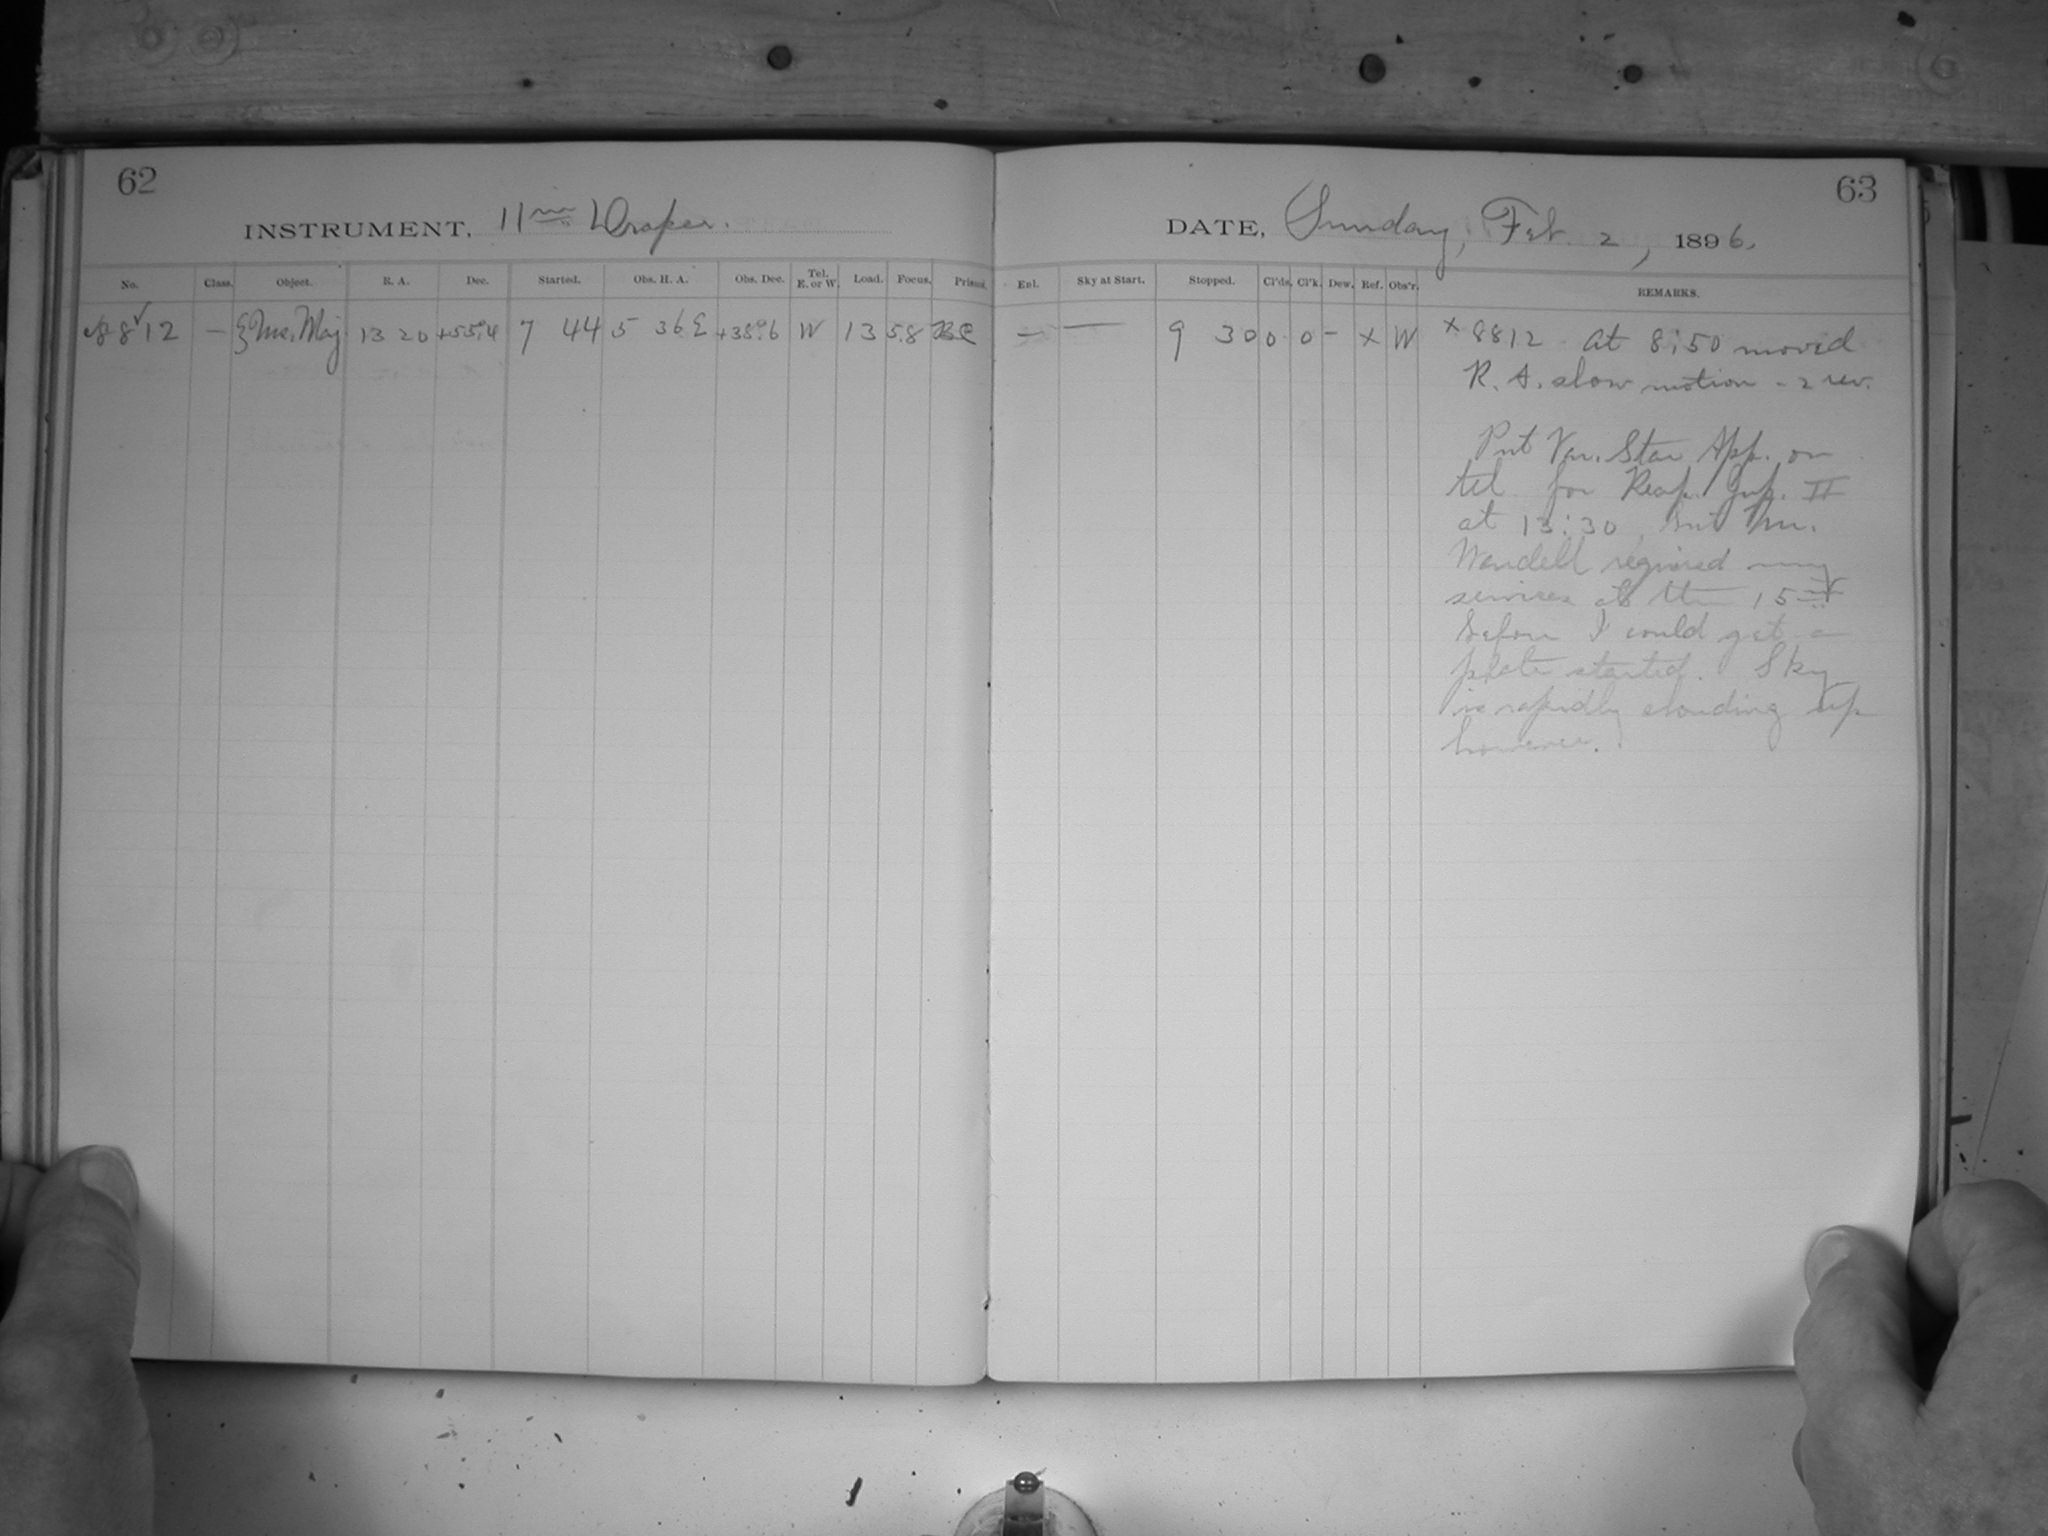 62
INSTRUMENT, 11in Draper.
No. Class. Object. R. A. Dec. Started. Obs. H. A. Obs. Dec. Tel. E. or W. Load. Focus. Prisms.
8812 — ξ Urs. Maj. 13 20 +55.4 7 44 5 36 E +38.6 W 13 5.8
63
DATE, Sunday, Feb. 2, 1896.
Enl. Sky at Start. Stopped. Cl'ds. Cl'k. Dew. Ref. Obs'r. REMARKS.
— — 9 30 0 0 – x W x 8812 At 8:50 moved
R. A. slow motion - 2 rev.
Put Var. Star App. on
tel for Reap. Jup. II
at 13:30, but Mr.
Wendell required my
services at the 15in
before I could get a
plate started. Sky
is rapidly clouding up
however.